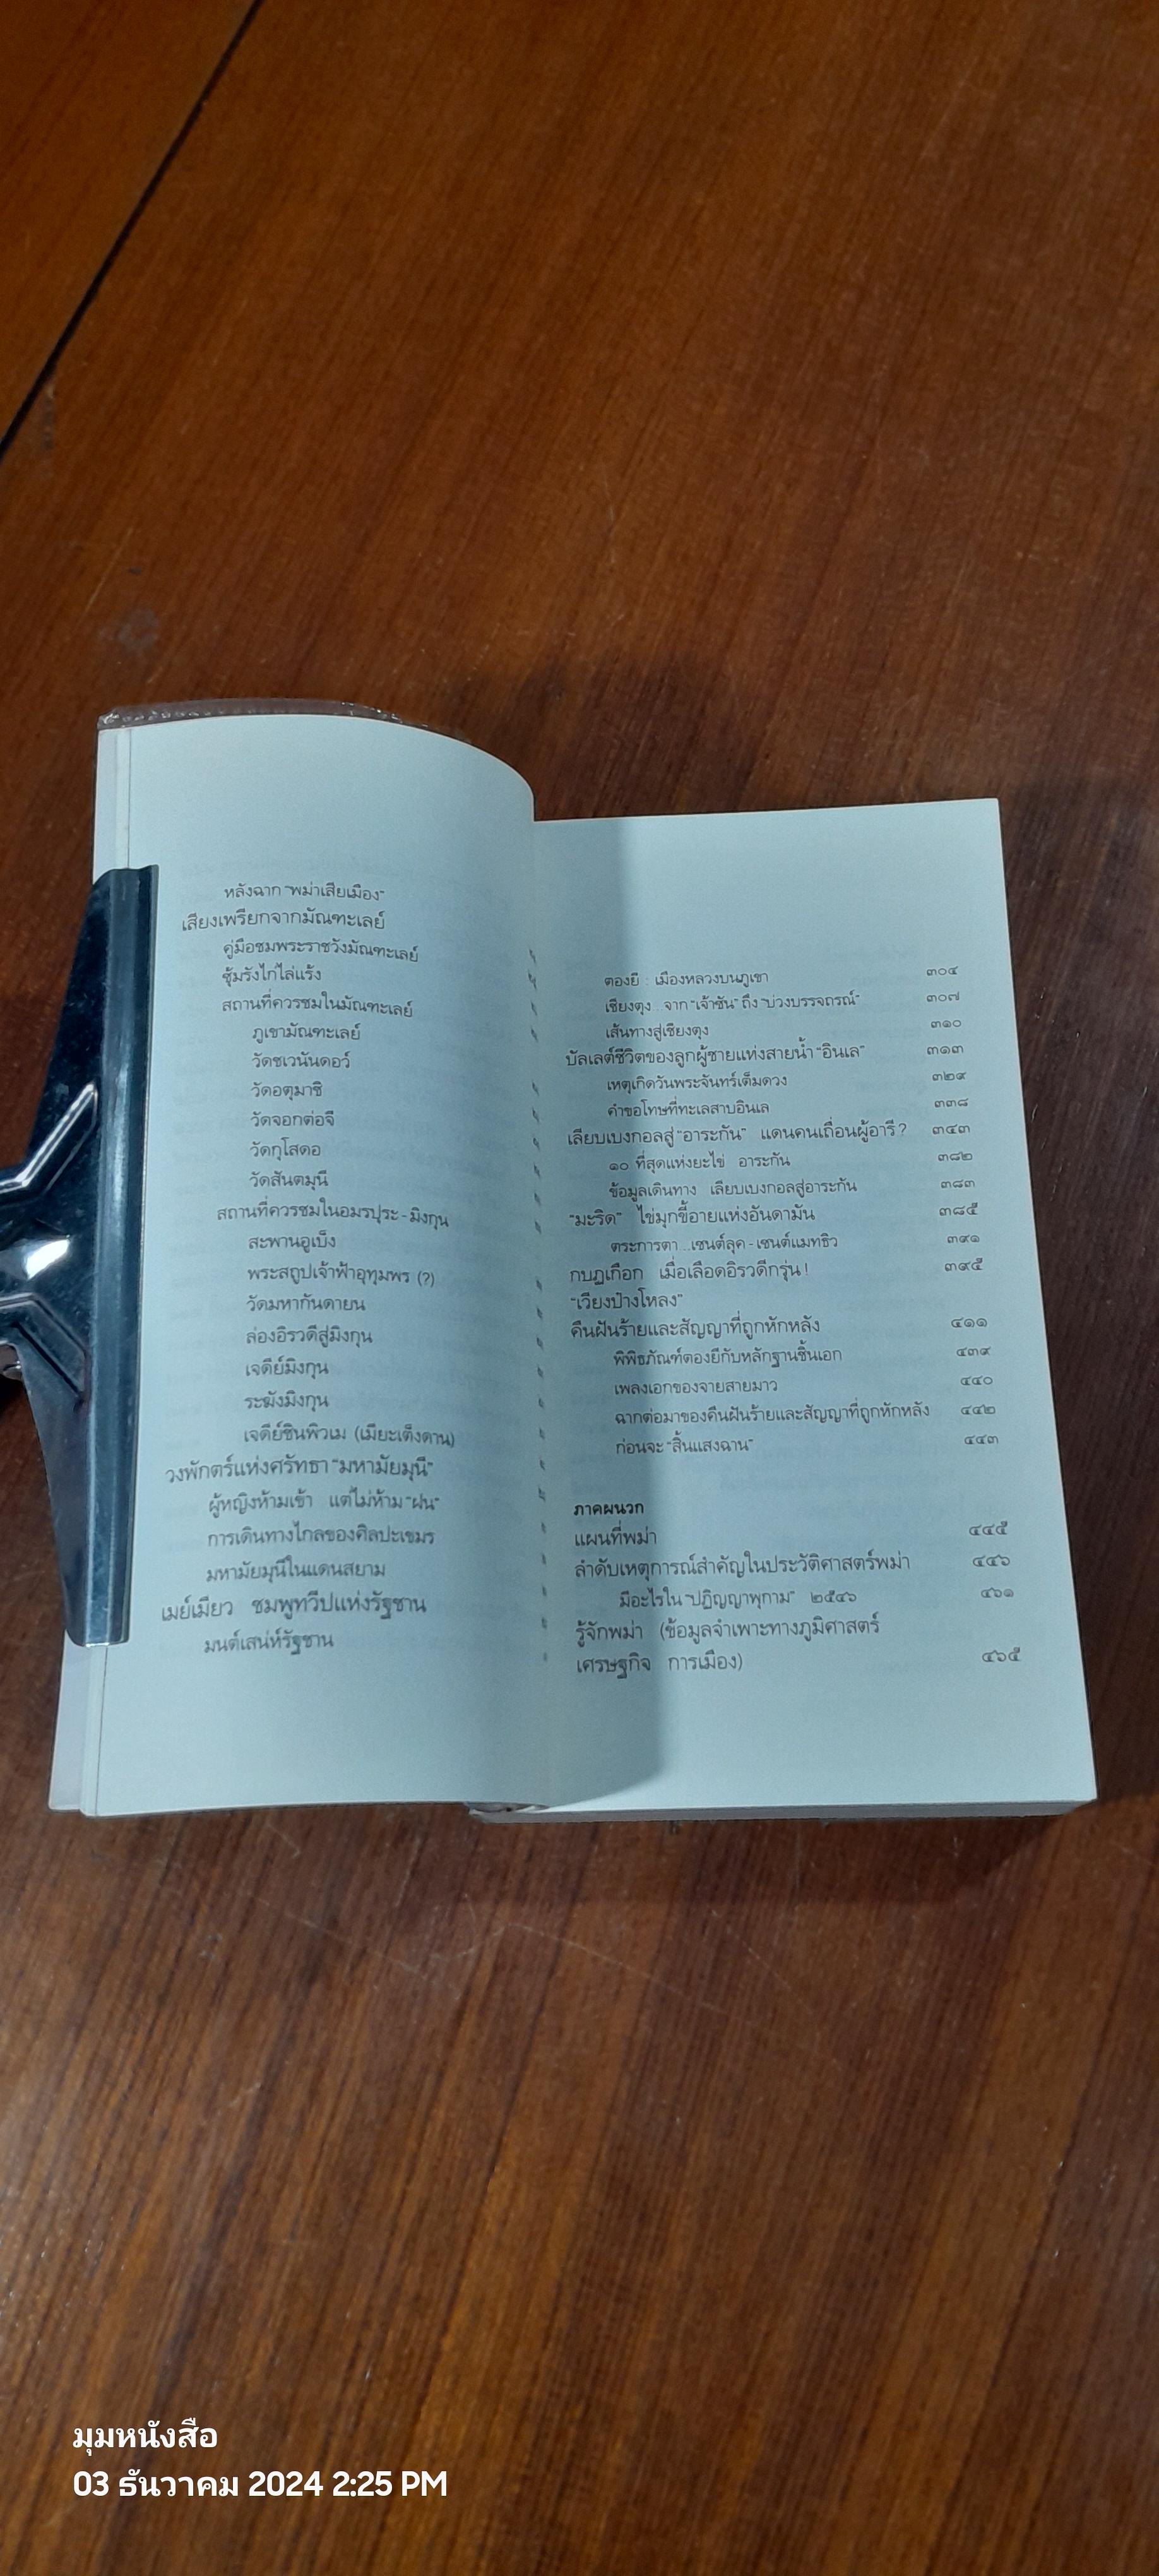 หลังฉาก “พม่าเสียเมือง”
เสียงเพรียกจากมัณฑะเลย์
คู่มือชมพระราชวังมัณฑะเลย์
ซุ้มรังไก่ไล่แร้ง
สถานที่ควรชมในมัณฑะเลย์
ภูเขามัณฑะเลย์
วัดชเวนันดอว์
วัดอตุมาชิ
วัดจอกต่อจี
วัดกุโสดอ
วัดสันตมุนี
สถานที่ควรชมในอมรปุระ - มิงกุน
สะพานอูเบ็ง
พระสถูปเจ้าฟ้าอุทุมพร (?)
วัดมหากันดายน
ล่องอิรวดีสู่มิงกุน
เจดีย์มิงกุน
ระฆังมิงกุน
เจดีย์ชินพิวเม (เมียะเต็งดาน)
วงพักตร์แห่งศรัทธา “มหามัยมุนี”
ผู้หญิงห้ามเข้า แต่ไม่ห้าม “ฝน”
การเดินทางไกลของศิลปะเขมร
มหามัยมุนีในแดนสยาม
เมย์เมียว ชมพูทวีปแห่งรัฐชาน
มนต์เสน่ห์รัฐชาน
ตองยี : เมืองหลวงบนภูเขา ๓๐๔
เชียงตุง...จาก “เจ้าชัน” ถึง “บ่วงบรรจถรณ์” ๓๐๗
เส้นทางสู่เชียงตุง ๓๑๐
บัลเลต์ชีวิตของลูกผู้ชายแห่งสายน้ำ “อินเล” ๓๑๓
เหตุเกิดวันพระจันทร์เต็มดวง ๓๒๙
คำขอโทษที่ทะเลสาบอินเล ๓๓๘
เลียบเบงกอลสู่ “อาระกัน” แดนคนเถื่อนผู้อารี ? ๓๔๓
๑๐ ที่สุดแห่งยะไข่ อาระกัน ๓๘๒
ข้อมูลเดินทาง เลียบเบงกอลสู่อาระกัน ๓๘๓
“มะริด” ไข่มุกขี้อายแห่งอันดามัน ๓๘๕
ตระการตา...เซนต์ลุค - เซนต์แมทธิว ๓๙๑
กบฏเกือก เมื่อเลือดอิรวดีกรุ่น ! ๓๙๕
“เวียงป่างโหลง”
คืนฝันร้ายและสัญญาที่ถูกหักหลัง ๔๑๑
พิพิธภัณฑ์ตองยีกับหลักฐานชิ้นเอก ๔๓๙
เพลงเอกของจายสายมาว ๔๔๐
ฉากต่อมาของคืนฝันร้ายและสัญญาที่ถูกหักหลัง ๔๔๒
ก่อนจะ “สิ้นแสงฉาน” ๔๔๓
ภาคผนวก
แผนที่พม่า ๔๔๕
ลำดับเหตุการณ์สำคัญในประวัติศาสตร์พม่า ๔๔๖
มีอะไรใน “ปฏิญญาพุกาม” ๒๕๔๖ ๔๖๑
รู้จักพม่า (ข้อมูลจำเพาะทางภูมิศาสตร์
เศรษฐกิจ การเมือง) ๔๖๕
มุมหนังสือ
03 ธันวาคม 2024 2:25 PM